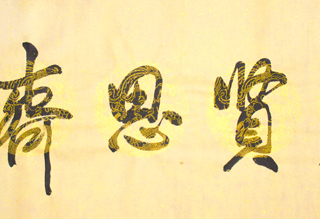 賢思齊